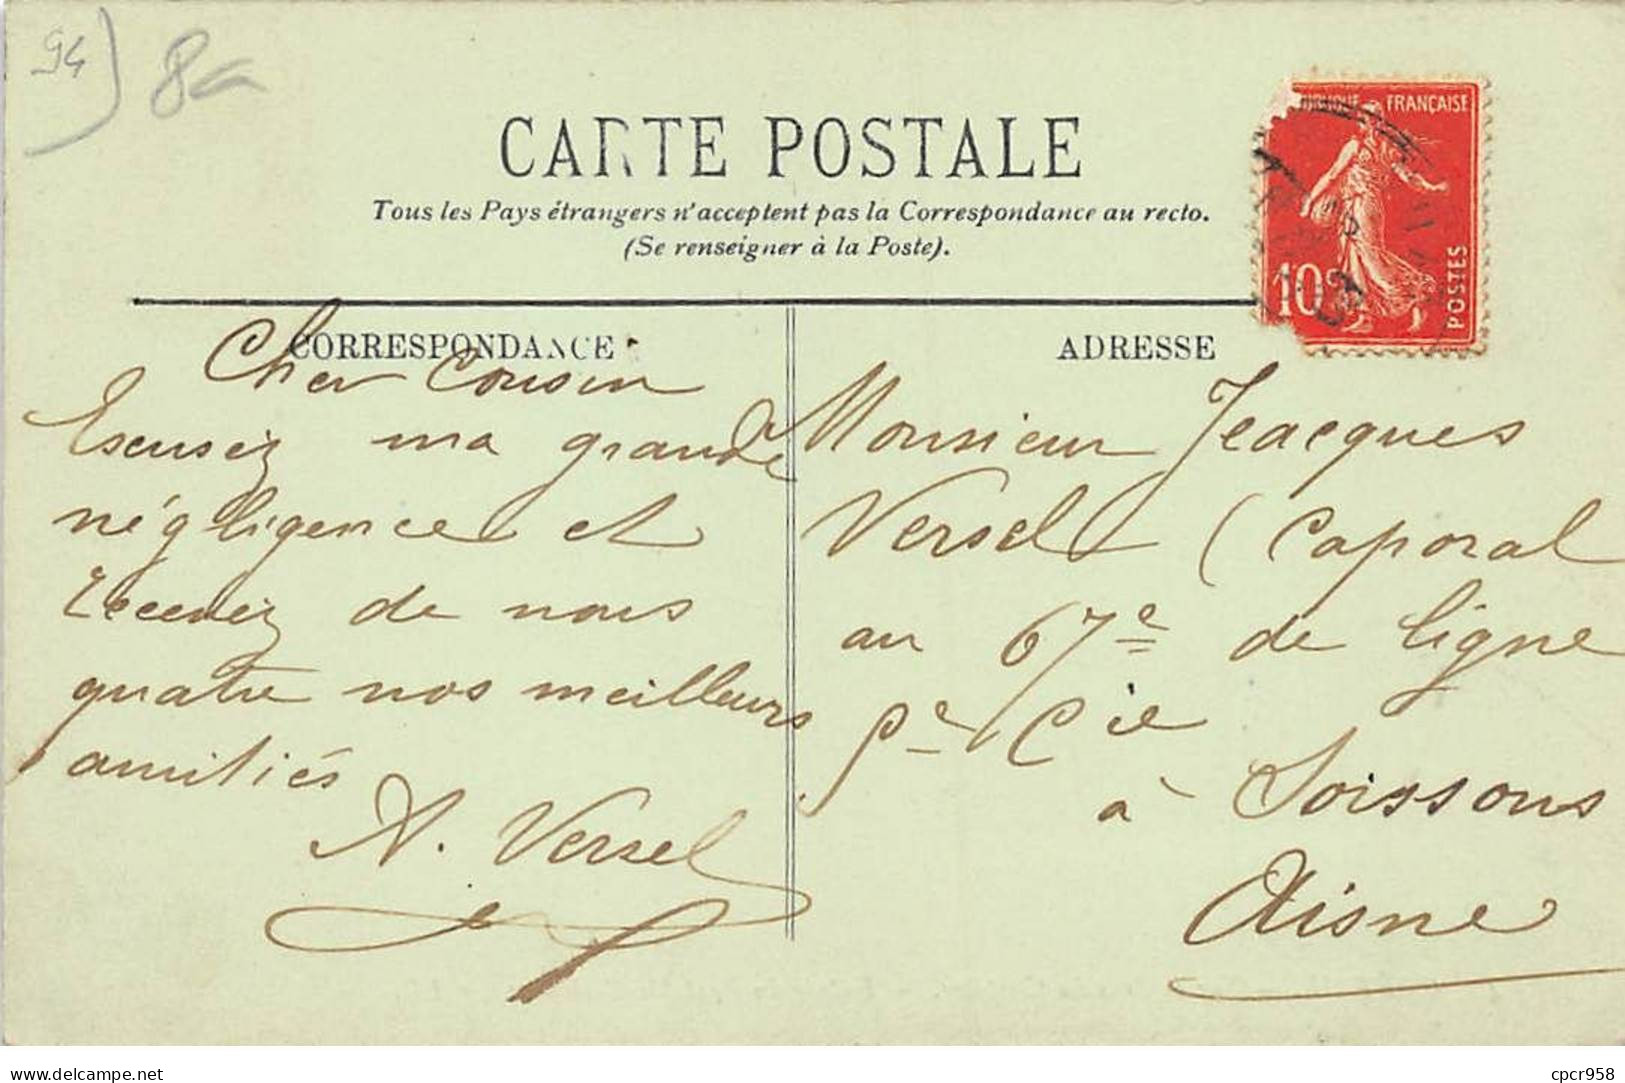 94
CARTE POSTALE
Tous les Pays étrangers n'acceptent pas la Correspondance au recto.
(Se renseigner à la Poste).
FRANÇAISE
10
POSTES
CORRESPONDANCE
Cher Cousin
Excusez ma grande
négligence et
recevez de nous
quatre nos meilleurs
amitiés
A. Versel
ADRESSE
Monsieur Jeacques
Versel (Caporal
au 67e de ligne
Cie
à Soissons
Aisne
www.delcampe.net
cpcr958